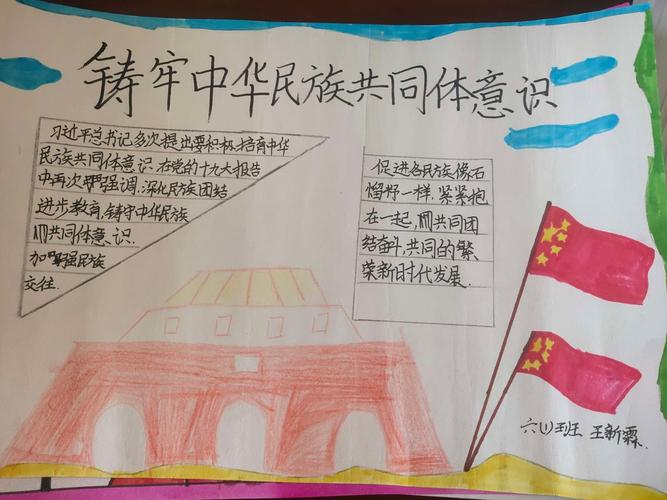 铸牢中华民族共同体意识
习近平总书记多次提出要积极培育中华
民族共同体意识.在党的十九大报告
中再次强调,深化民族团结
进步教育,铸守中华民族
共同体意识.
加强民族
交往
促进各民族像石
榴籽一样,紧紧抱
在一起,共同团
结奋斗,共同的繁
荣新时代发展.
六(1)班 王新霖.